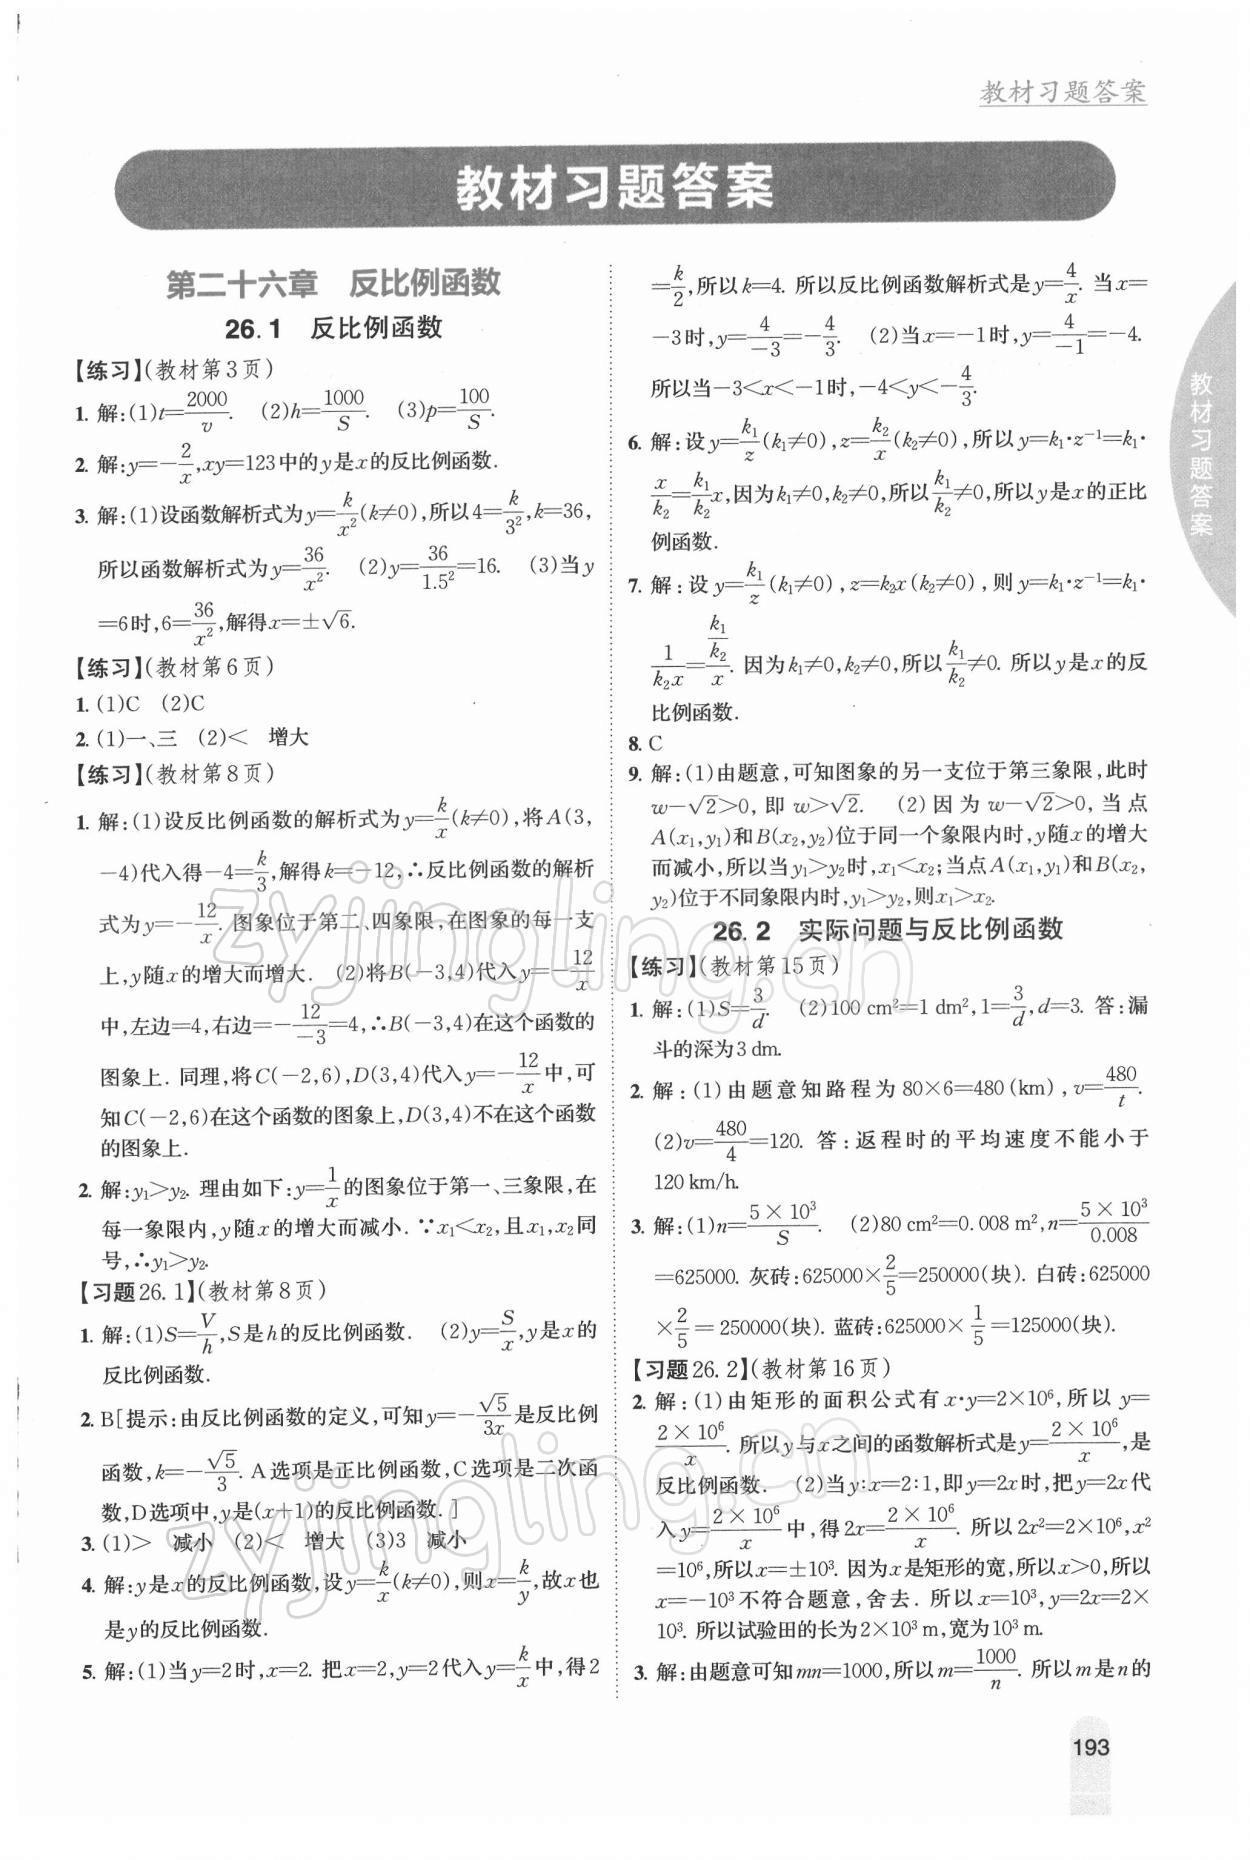 教材习题答案
教材习题答案
第二十六章　反比例函数
26.1　反比例函数
【练习】(教材第3页)
1. 解:(1)t=2000/v.　(2)h=1000/S.　(3)p=100/S.
2. 解:y=-2/x,xy=123中的y是x的反比例函数.
3. 解:(1)设函数解析式为y=k/x²(k≠0),所以4=k/3²,k=36,
所以函数解析式为y=36/x².　(2)y=36/1.5²=16.　(3)当y
=6时,6=36/x²,解得x=±√6.
【练习】(教材第6页)
1. (1)C　(2)C
2. (1)一、三　(2)<　增大
【练习】(教材第8页)
1. 解:(1)设反比例函数的解析式为y=k/x(k≠0),将A(3,
-4)代入得-4=k/3,解得k=-12,∴反比例函数的解析
式为y=-12/x. 图象位于第二、四象限,在图象的每一支
上,y随x的增大而增大.　(2)将B(-3,4)代入y=-12/x
中,左边=4,右边=-12/-3=4,∴B(-3,4)在这个函数的
图象上. 同理,将C(-2,6),D(3,4)代入y=-12/x中,可
知C(-2,6)在这个函数的图象上,D(3,4)不在这个函数
的图象上.
2. 解:y₁>y₂. 理由如下:y=1/x的图象位于第一、三象限,在
每一象限内,y随x的增大而减小. ∵x₁<x₂,且x₁,x₂同
号,∴y₁>y₂.
【习题26.1】(教材第8页)
1. 解:(1)S=V/h,S是h的反比例函数.　(2)y=S/x,y是x的
反比例函数.
2. B[提示:由反比例函数的定义,可知y=-√5/3x是反比例
函数,k=-√5/3. A选项是正比例函数,C选项是二次函
数,D选项中,y是(x+1)的反比例函数.]
3. (1)>　减小　(2)<　增大　(3)3　减小
4. 解:y是x的反比例函数,设y=k/x(k≠0),则x=k/y,故x也
是y的反比例函数.
5. 解:(1)当y=2时,x=2. 把x=2,y=2代入y=k/x中,得2
=k/2,所以k=4. 所以反比例函数解析式是y=4/x. 当x=
-3时,y=4/-3=-4/3.　(2)当x=-1时,y=4/-1=-4.
所以当-3<x<-1时,-4<y<-4/3.
6. 解:设y=k₁/z(k₁≠0),z=k₂/x(k₂≠0),所以y=k₁·z⁻¹=k₁·
x/k₂=k₁/k₂x,因为k₁≠0,k₂≠0,所以k₁/k₂≠0,所以y是x的正比
例函数.
7. 解:设y=k₁/z(k₁≠0),z=k₂x(k₂≠0),则y=k₁·z⁻¹=k₁·
1/k₂x=(k₁/k₂)/x. 因为k₁≠0,k₂≠0,所以k₁/k₂≠0. 所以y是x的反
比例函数.
8. C
9. 解:(1)由题意,可知图象的另一支位于第三象限,此时
w-√2>0,即w>√2.　(2)因为w-√2>0,当点
A(x₁,y₁)和B(x₂,y₂)位于同一个象限内时,y随x的增大
而减小,所以当y₁>y₂时,x₁<x₂;当点A(x₁,y₁)和B(x₂,
y₂)位于不同象限内时,y₁>y₂,则x₁>x₂.
26.2　实际问题与反比例函数
【练习】(教材第15页)
1. 解:(1)S=3/d.　(2)100 cm²=1 dm²,1=3/d,d=3. 答:漏
斗的深为3 dm.
2. 解:(1)由题意知路程为80×6=480(km),v=480/t.
(2)v=480/4=120. 答:返程时的平均速度不能小于
120 km/h.
3. 解:(1)n=5×10³/S.　(2)80 cm²=0.008 m²,n=5×10³/0.008
=625000. 灰砖:625000×2/5=250000(块). 白砖:625000
×2/5=250000(块). 蓝砖:625000×1/5=125000(块).
【习题26.2】(教材第16页)
2. 解:(1)由矩形的面积公式有x·y=2×10⁶,所以y=
2×10⁶/x. 所以y与x之间的函数解析式是y=2×10⁶/x,是
反比例函数.　(2)当y:x=2:1,即y=2x时,把y=2x代
入y=2×10⁶/x中,得2x=2×10⁶/x. 所以2x²=2×10⁶,x²
=10⁶,所以x=±10³. 因为x是矩形的宽,所以x>0,所以
x=-10³不符合题意,舍去. 所以x=10³,y=2x=2×
10³. 所以试验田的长为2×10³ m,宽为10³ m.
3. 解:由题意可知mn=1000,所以m=1000/n. 所以m是n的
教材习题答案
193
zyjingling.cn
zyjingling.cn